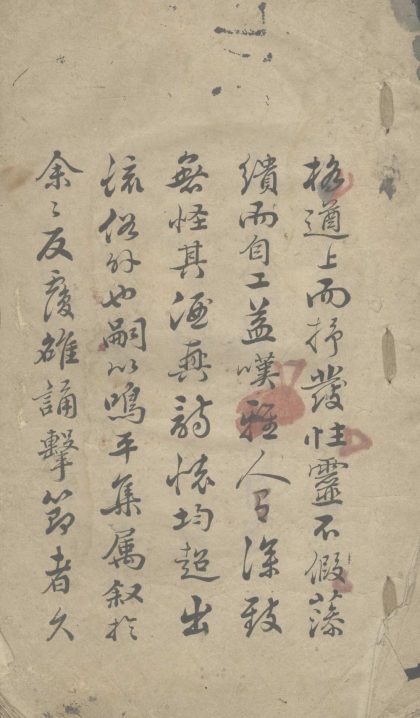 格遒上而抒發性靈不假藻
繢而自工益嘆雅人自深致
無怪其酒興詩懷均超出
流俗外也嗣以鳴平集属叙於
余余反覆雒誦擊節者久